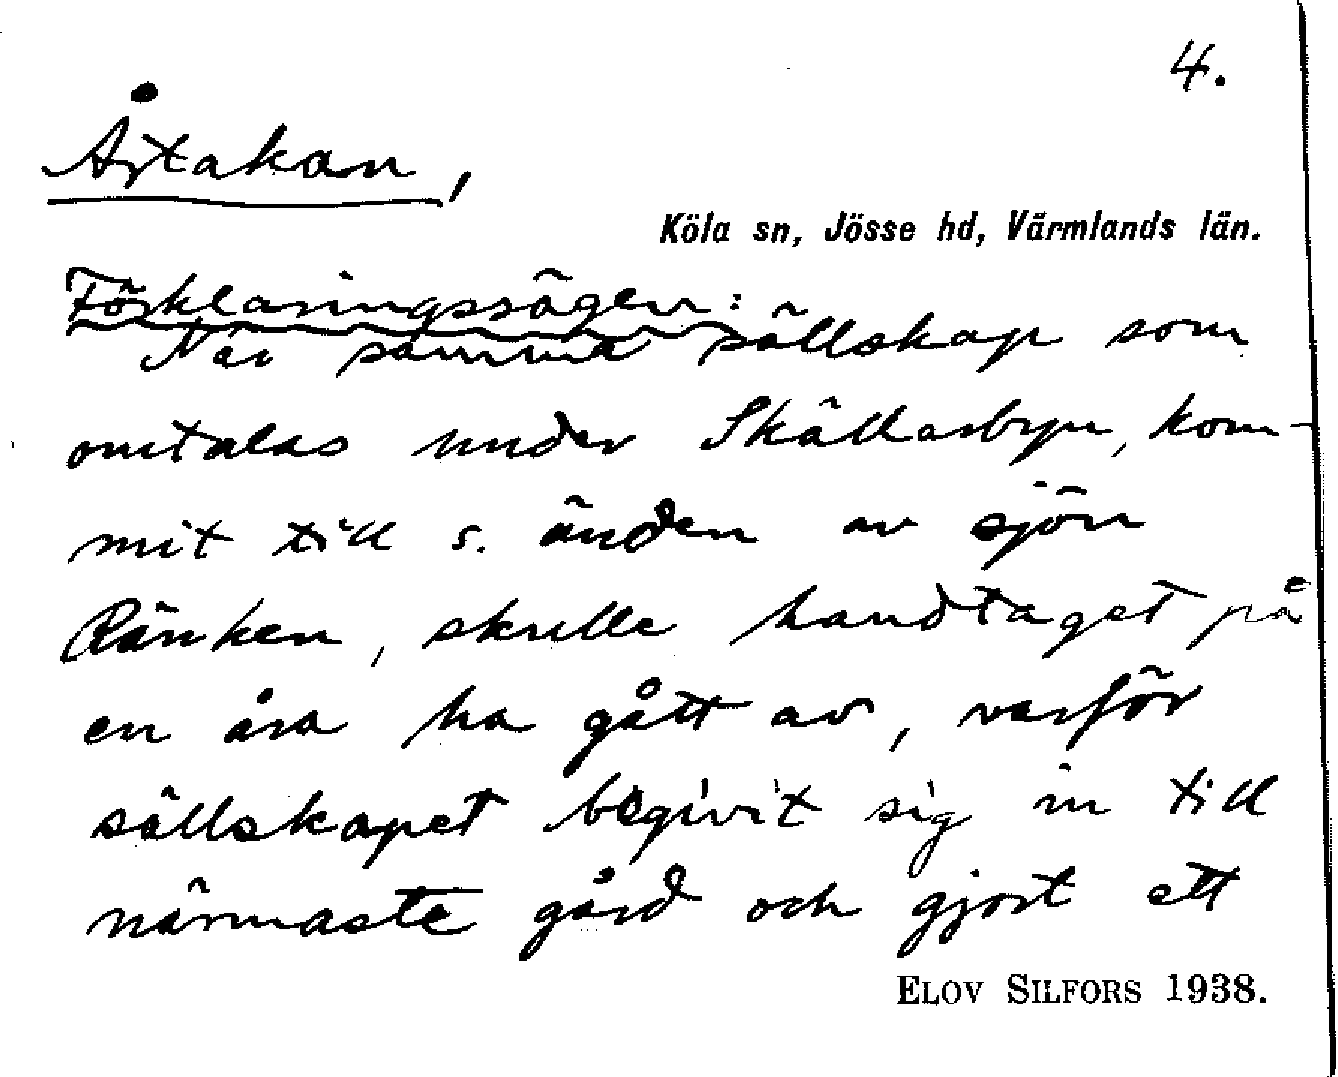 4.
Årtakan,
Köla sn, Jösse hd, Värmlands län.
Förklaringssägen:
När samma sällskap som
omtalas under Skällarbyn, kom-
mit till s. änden av sjön
Ränken, skulle handtaget på
en åra ha gått av, varför
sällskapet begivit sig in till
närmaste gård och gjort ett
ELOV SILFORS 1938.